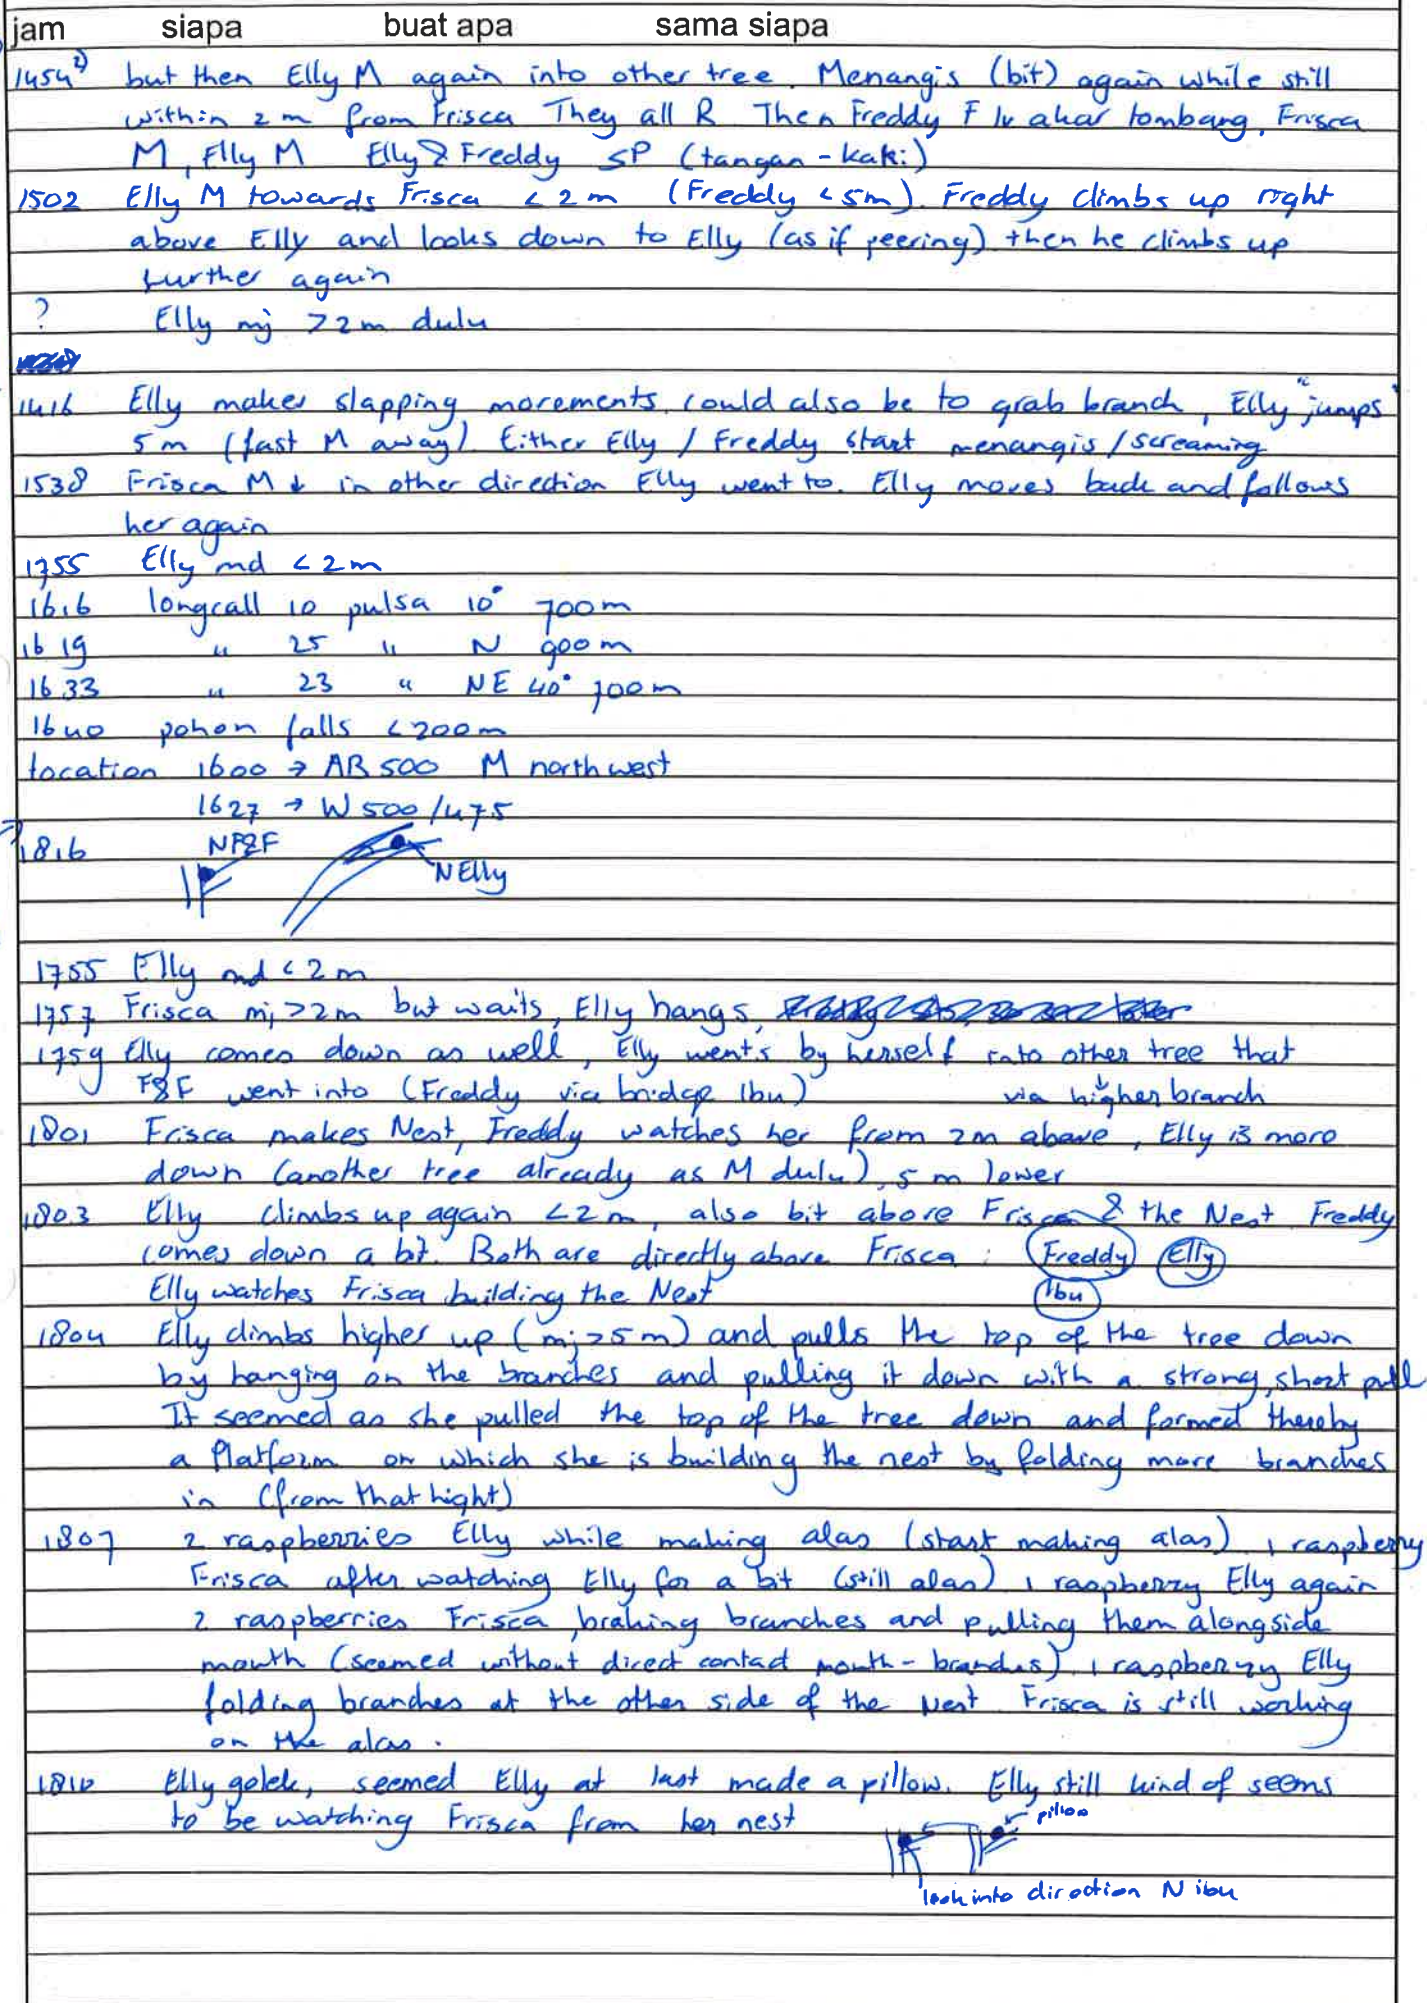 jam siapa buat apa sama siapa
1454 2) but then Elly M again into other tree. Menangis (bit) again while still
within 2 m from Frisca They all R Then Freddy F lv akar tombang, Frisca
M, Elly M Elly & Freddy SP (tangan - kaki)
1502 Elly M towards Frisca < 2 m (Freddy < 5m). Freddy climbs up right
above Elly and looks down to Elly (as if peering) then he climbs up
further again
? Elly mj >2m dulu
1416 Elly makes slapping movements, could also be to grab branch, Elly "jumps"
5 m (fast M away). Either Elly / Freddy start menangis / screaming
1538 Frisca M ↓ in other direction Elly went to. Elly moves back and follows
her again
1755 Elly md < 2m
1616 longcall 10 pulsa 10° 700m
1619 " 25 " N 900m
1633 " 23 " NE 40° 700m
1640 pohon falls <200m
location 1600 → AB 500 M north west
1627 → W 500/475
1816 NF&F
NElly
1755 Elly md < 2 m
1757 Frisca mj >2m but waits, Elly hangs,
1759 Elly comes down as well, Elly went's by herself into other tree that
F&F went into (Freddy via bridge Ibu) via higher branch
1801 Frisca makes Nest, Freddy watches her from 2m above, Elly is more
down (another tree already as M dulu), 5 m lower
1803 Elly climbs up again <2m, also bit above Frisca & the Nest Freddy
comes down a bit. Both are directly above Frisca: Freddy Elly
Elly watches Frisca building the Nest Ibu
1804 Elly climbs higher up (mj >5m) and pulls the top of the tree down
by hanging on the branches and pulling it down with a strong, short pull
It seemed as she pulled the top of the tree down and formed thereby
a Platform on which she is building the nest by folding more branches
in (from that hight)
1807 2 raspberries Elly while making alas (start making alas) 1 raspberry
Frisca after watching Elly for a bit (still alas) 1 raspberry Elly again
2 raspberries Frisca, braking branches and pulling them alongside
mouth (seemed without direct contact mouth - branches), 1 raspberry Elly
folding branches at the other side of the Nest. Frisca is still working
on the alas.
1810 Elly golek, seemed Elly at last made a pillow. Elly still kind of seems
to be watching Frisca from her nest pillow
look into direction N ibu